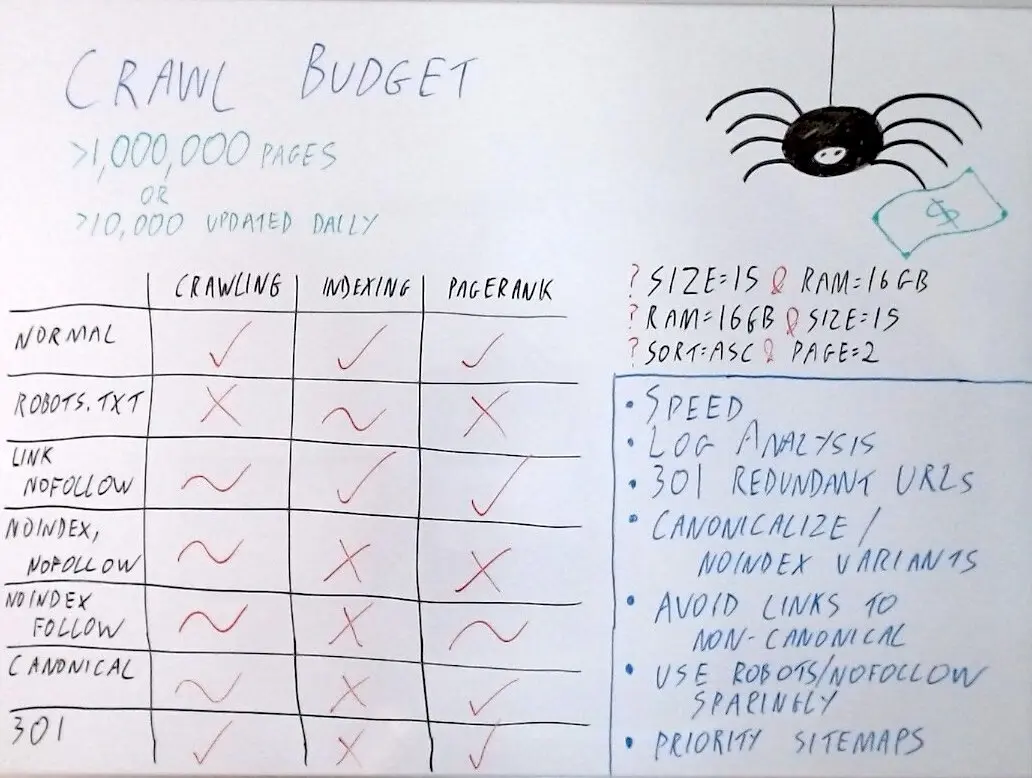 CRAWL BUDGET
>1,000,000 PAGES
OR
>10,000 UPDATED DAILY
$
CRAWLING INDEXING PAGERANK
NORMAL ✓ ✓ ✓
ROBOTS.TXT X ~ X
LINK
NOFOLLOW ~ ✓ ✓
NOINDEX,
NOFOLLOW ~ X X
NOINDEX
FOLLOW ~ X ~
CANONICAL ~ X ✓
301 ✓ X ✓
? SIZE=15 & RAM=16GB
? RAM=16GB & SIZE=15
? SORT=ASC & PAGE=2
• SPEED
• LOG ANALYSIS
• 301 REDUNDANT URLS
• CANONICALIZE /
NOINDEX VARIANTS
• AVOID LINKS TO
NON-CANONICAL
• USE ROBOTS/NOFOLLOW
SPARINGLY
• PRIORITY SITEMAPS